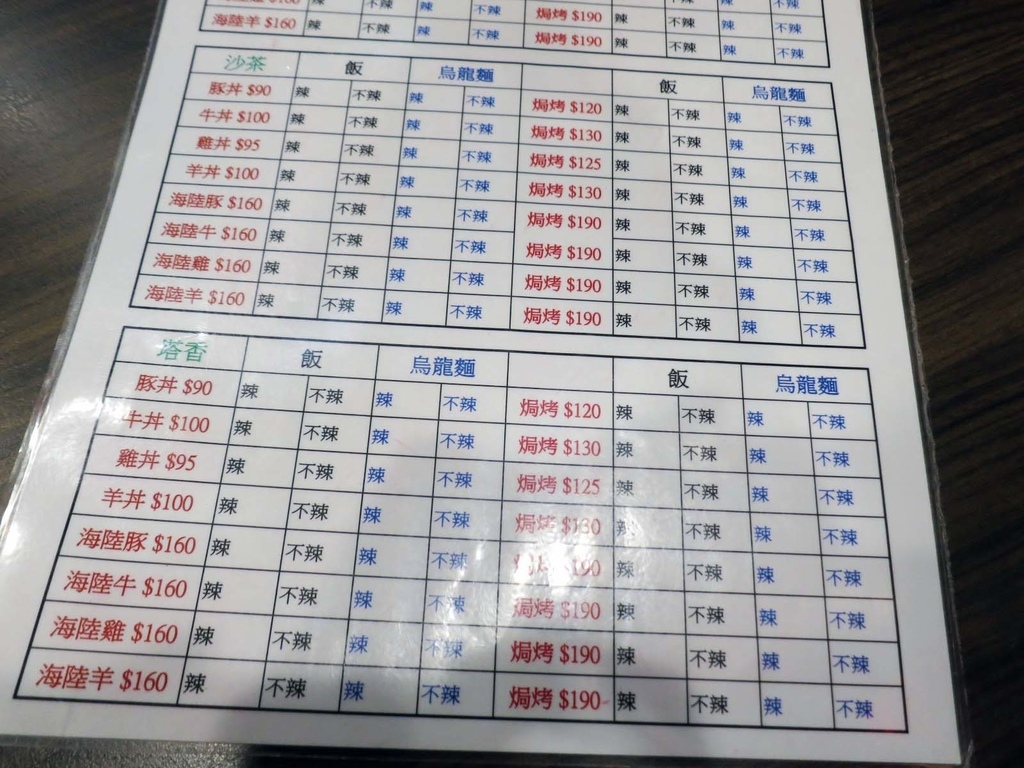 辣 不辣 辣 不辣 辣 不辣 辣 不辣
海陸羊 $160 辣 不辣 辣 不辣 焗烤 $190 辣 不辣 辣 不辣
焗烤 $190 辣 不辣 辣 不辣
沙茶 飯 烏龍麵 飯 烏龍麵
豚丼 $90 辣 不辣 辣 不辣 焗烤 $120 辣 不辣 辣 不辣
牛丼 $100 辣 不辣 辣 不辣 焗烤 $130 辣 不辣 辣 不辣
雞丼 $95 辣 不辣 辣 不辣 焗烤 $125 辣 不辣 辣 不辣
羊丼 $100 辣 不辣 辣 不辣 焗烤 $130 辣 不辣 辣 不辣
海陸豚 $160 辣 不辣 辣 不辣 焗烤 $190 辣 不辣 辣 不辣
海陸牛 $160 辣 不辣 辣 不辣 焗烤 $190 辣 不辣 辣 不辣
海陸雞 $160 辣 不辣 辣 不辣 焗烤 $190 辣 不辣 辣 不辣
海陸羊 $160 辣 不辣 辣 不辣 焗烤 $190 辣 不辣 辣 不辣
塔香 飯 烏龍麵 飯 烏龍麵
豚丼 $90 辣 不辣 辣 不辣 焗烤 $120 辣 不辣 辣 不辣
牛丼 $100 辣 不辣 辣 不辣 焗烤 $130 辣 不辣 辣 不辣
雞丼 $95 辣 不辣 辣 不辣 焗烤 $125 辣 不辣 辣 不辣
羊丼 $100 辣 不辣 辣 不辣 焗烤 $130 辣 不辣 辣 不辣
海陸豚 $160 辣 不辣 辣 不辣 焗烤 $190 辣 不辣 辣 不辣
海陸牛 $160 辣 不辣 辣 不辣 焗烤 $190 辣 不辣 辣 不辣
海陸雞 $160 辣 不辣 辣 不辣 焗烤 $190 辣 不辣 辣 不辣
海陸羊 $160 辣 不辣 辣 不辣 焗烤 $190 辣 不辣 辣 不辣